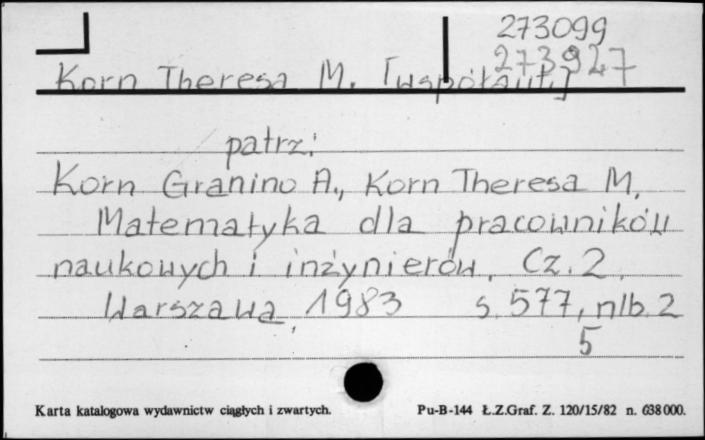 273099
273927
Korn Theresa M. [współaut.]
patrz:
Korn Granino A., Korn Theresa M.
Matematyka dla pracowników
naukowych i inżynierów. Cz. 2.
Warszawa, 1983 s. 577, nlb. 2
5
Karta katalogowa wydawnictw ciągłych i zwartych. Pu-B-144 Ł.Z.Graf. Z. 120/15/82 n. 638 000.